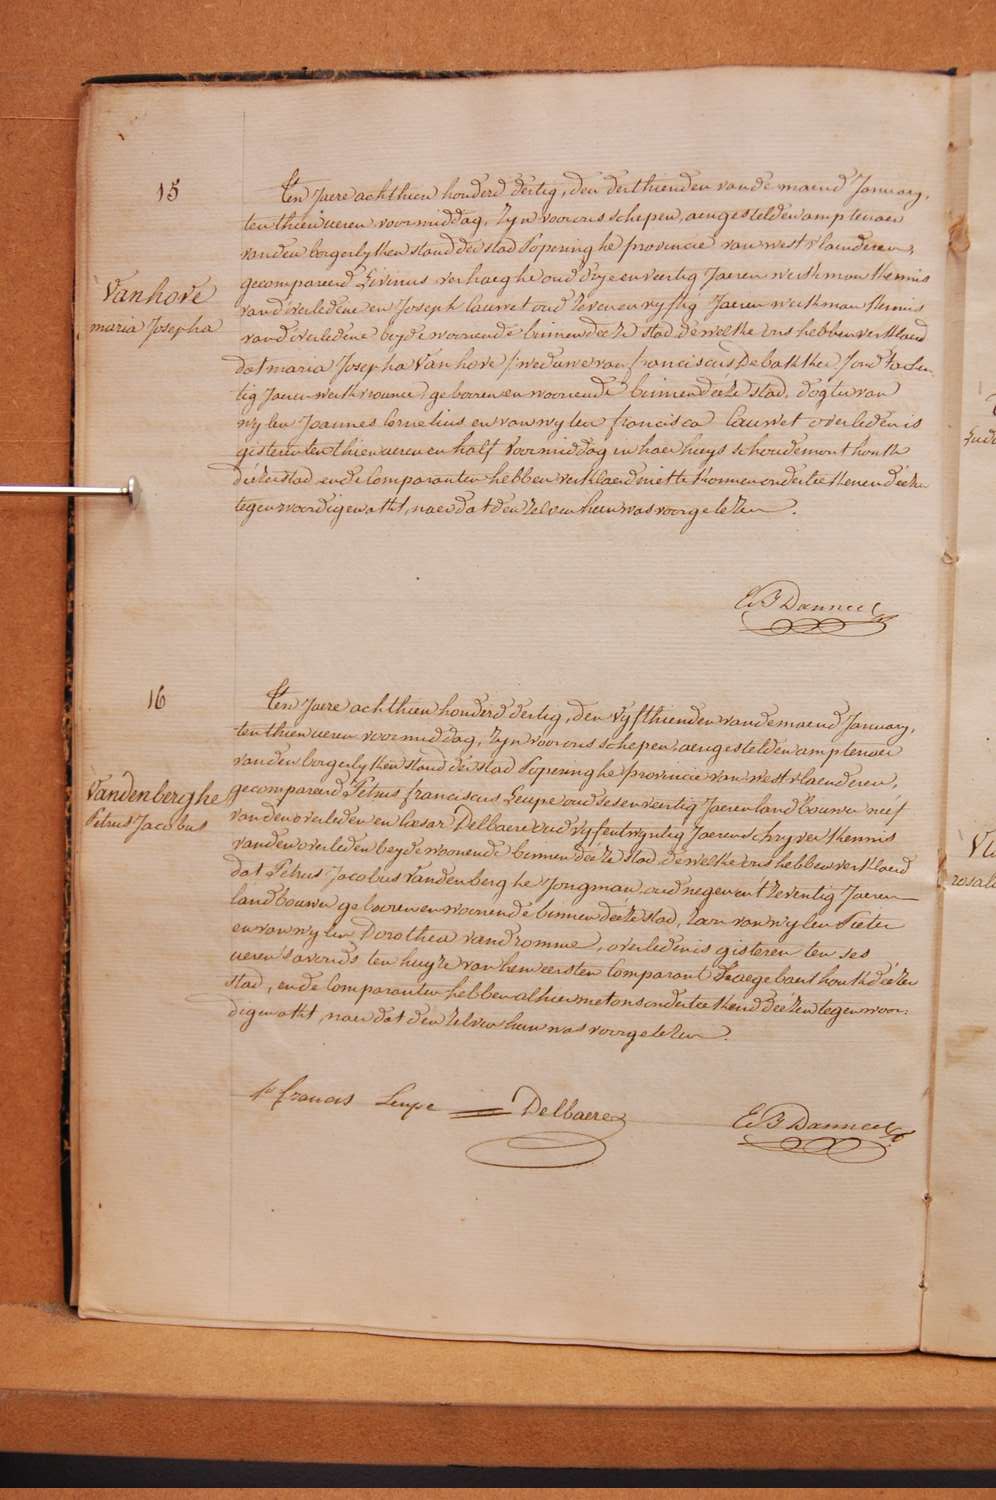 15
Vanhove
maria Josepha
Ten Jaere achthien honderd dertig, den derthienden van de maend January,
ten thien ueren voormiddag, zyn voor ons schepen, aengestelden amptenaer
van den borgerlyken stand der stad Poperinghe provincie van westvlaenderen,
gecompareerd Livinus verhaeghe oud drye en veertig Jaeren werkman kennis
van d'overledene en Joseph Cauwet oud zeven en vyftig Jaeren werkman kennis
van d'overledene beyde woonende binnen deéze stad dewelke ons hebben verklaerd
dat maria Josepha Vanhove / weduwe van franciscus Debakker / oud tachen-
tig Jaeren werkvrouwe geboren en woonende binnen deéze stad, dogter van
wylen Joannes Cornelius en van wylen francisca Cauwet overleden is
gisteren ten thien ueren en half voormiddag in haer huys schoudemonthouk
déézer stad en de Comparanten hebben verklaerd niet te konnen onderteekenen déézen
tegenwoordigen akt, naer dat den zelven hun was voorgelezen.
E B Danneel
16
Vandenberghe
Petrus Jacobus
Ten Jaere achthien honderd dertig, den vyfthienden van de maend January,
ten thien ueren voormiddag, zyn voor ons schepen, aengestelden amptenaer
van den borgerlyken stand der stad Poperinghe provincie van westvlaenderen,
gecompareerd Petrus franciscus Leupe oud ses en veertig Jaeren landbouwer neéf
van den overleden en Cæsar Delbaere oud vyf en twyntig Jaeren schryver kennis
van den overleden beyde woonende binnen deéze stad dewelke ons hebben verklaerd
dat Petrus Jacobus Vandenberghe Jongman, oud negen en t'zeventig Jaeren
landbouwer geboren en woonende binnen deéze stad, zoon van wylen Pieter
en van wylen Dorothea vandromme, overleden is gisteren ten ses
ueren s'avonds ten huyze van hem eersten Comparant Haegebaert houk déézer
stad, en de Comparanten hebben alhier met ons onderteekend déézen tegenwoor-
digen akt naer dat den zelven hun was voorgelezen.
Pr francis Leupe
Delbaere
E B Danneel